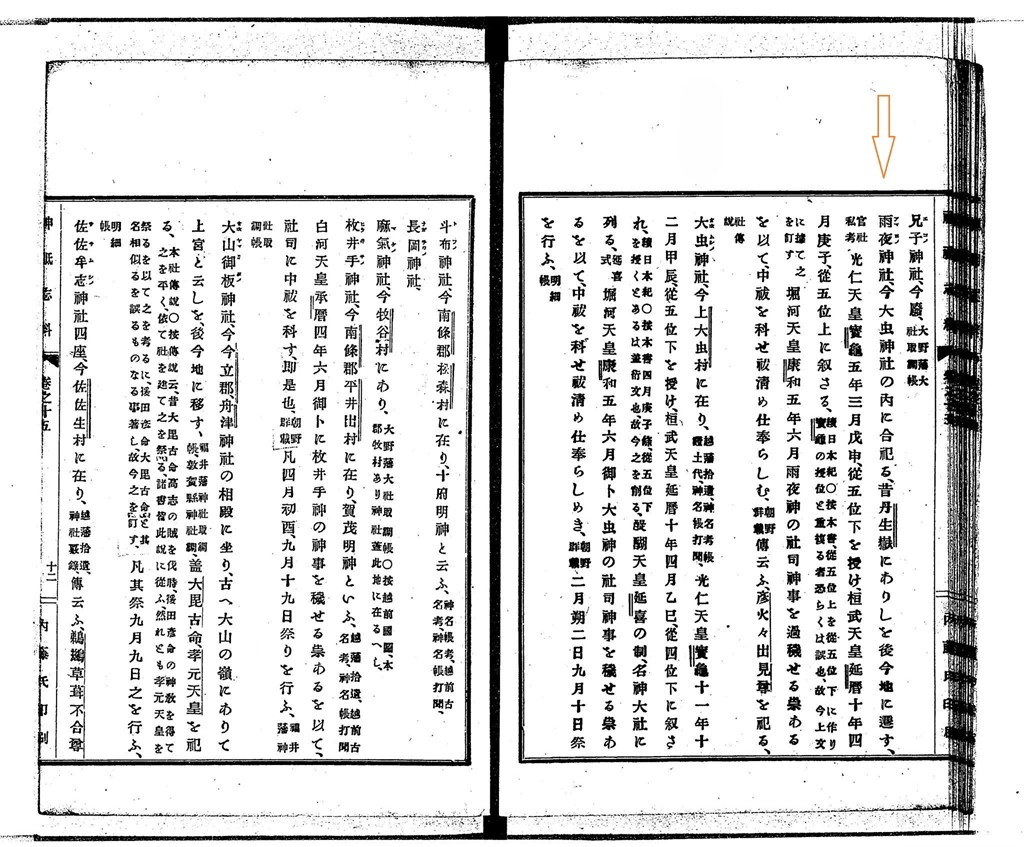 兄子神社、今廢、大野藩大社取調帳
雨夜神社、今大虫神社の内に合祀る、昔丹生嶽にありしを後今地に遷す、
官社私考光仁天皇寶龜五年三月戊申、從五位下を授け桓武天皇延曆十年四
月庚子、從五位上に叙さる、續日本紀〇按本書、從五位上を從五位下に作り寶龜の授位と重複る者恐らくは誤也、故今上文
に據て之を訂す堀河天皇康和五年六月雨夜神の社司神事を過穢せる祟ある
を以て中祓を科せ祓清め仕奉らしむ、朝野群載傳云ふ、彥火々出見尊を祀る、
社傳說
大虫神社、今上大虫村に在り、越藩拾遺、神名考、帳土代神名帳打聞光仁天皇寶龜十一年十
二月甲辰、從五位下を授け、桓武天皇延曆十年四月乙巳、從四位下に叙さ
れ、續日本紀〇按本書四月庚子條、從五位下を授くとあるは蓋衍文也、故今之を削る、醍醐天皇延喜の制、名神大社に
列る、延喜式堀河天皇康和五年六月御卜大虫神の社司神事を穢せる祟あ
るを以て、中祓を科せ祓清め仕奉らしめき、朝野群載二月朔二日九月十日祭
を行ふ、明細帳
斗布神社、今南條郡松森村に在り、十府明神と云ふ、神名帳考、越前古名考、神名帳打聞、
長岡神社、
麻氣神社、今牧谷村にあり、大野藩大社取調帳〇按越前國圖、本郡牧村あり神社蓋此地に在るへし、
枚井手神社、今南條郡平井出村に在り、賀茂明神といふ、越藩拾遺、越前古名考、神名帳打聞
白河天皇承曆四年六月御卜に枚井手神の神事を穢せる祟あるを以て、
社司に中祓を科す、卽是也、朝野群載凡四月初酉、九月十九日祭りを行ふ、福井藩神
社取調帳
大山御板神社、今今立郡、舟津神社の相殿に坐り、古へ大山の嶺にありて
上宮と云しを、後今地に移す、福井藩神社取調帳、敦賀縣神社調、蓋大毘古命、孝元天皇を祀
る、本社傳說〇按傳說云、昔大毘古命高志の賊を伐時、猿田彥命の神敎を得て之を平く、依て社を建て之を祭る、諸書皆此說に從ふ、然れとも孝元天皇を
祭るを以て之を考るに、猿田彥命大毘古命と其名相似るを誤るものなる事著し、故今之を訂す、凡其祭九月九日之を行ふ、
明細帳
佐佐牟志神社四座、今佐佐生村に在り、越藩拾遺、神社叢錄、傳云ふ、鵜鶿草葺不合尊
神祇志料
卷之十五
十二
內藤氏印刷